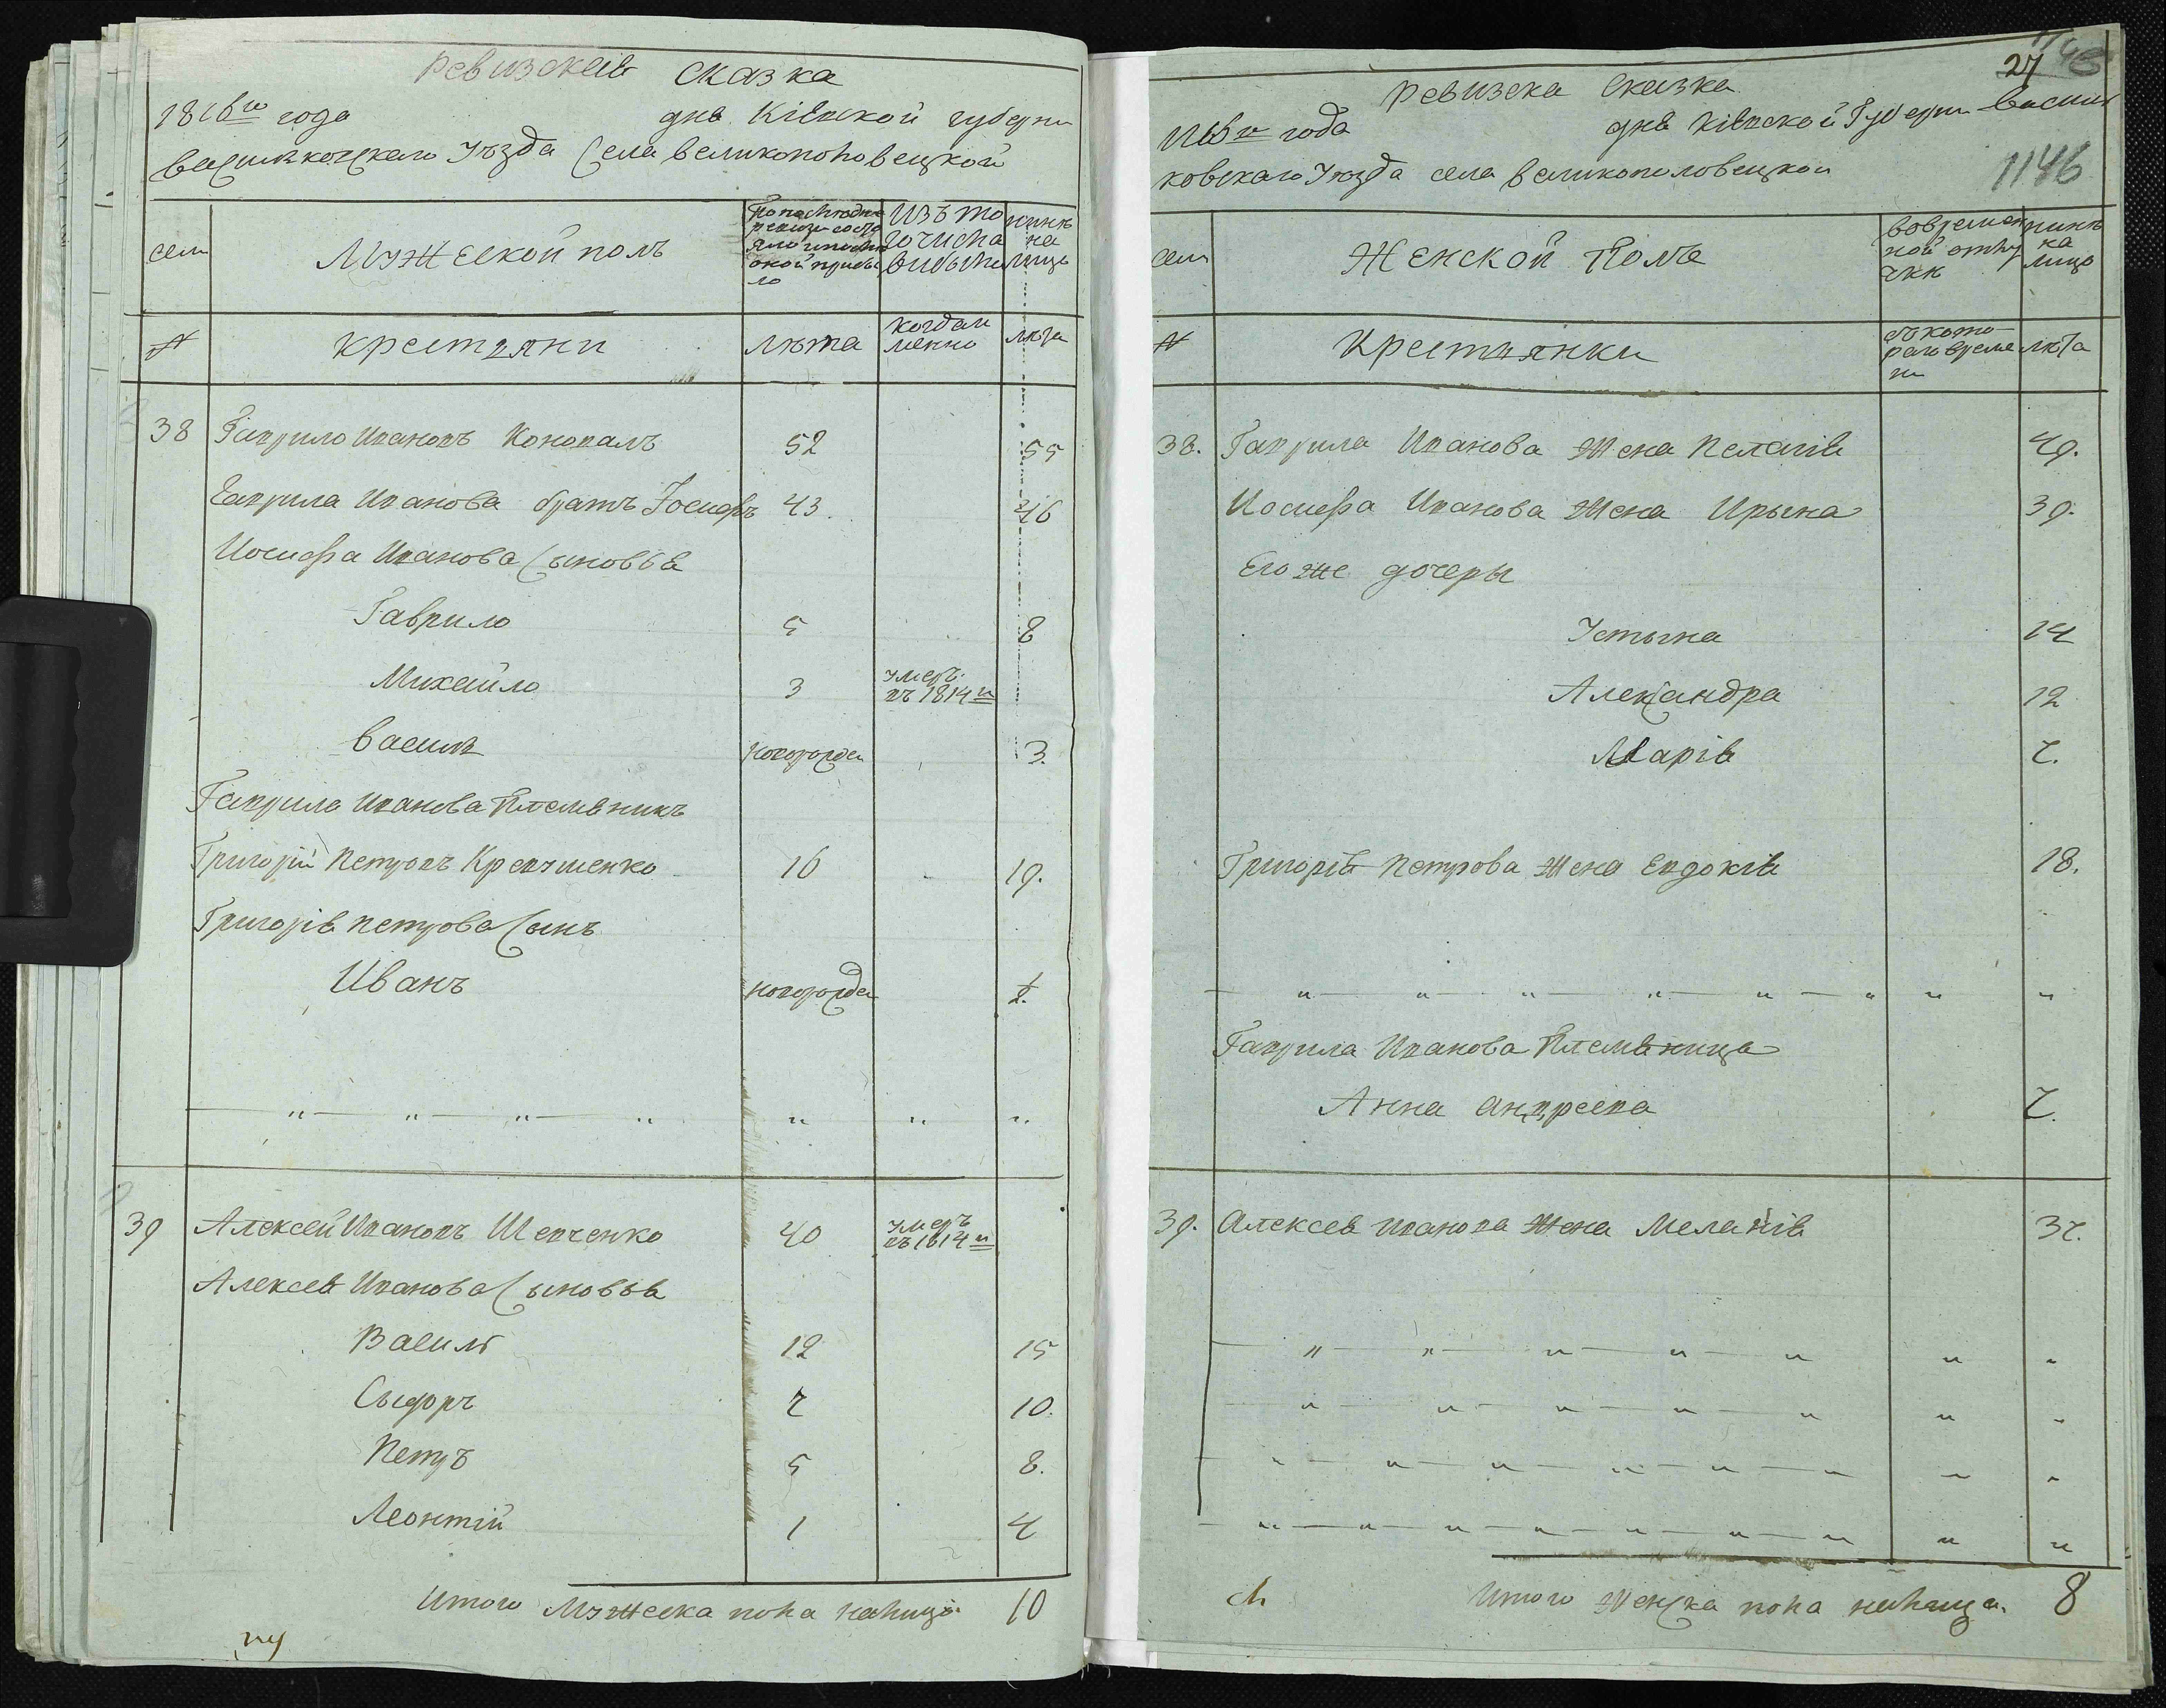 Ревизская сказка
1816го года дня Кіевской губерни
Васильковскаго Уѣзда Села Великополовецкой
семи
Мужеской полъ
По последне ревизи состояло и после оной прибыло
Изъ того числа выбыло
нынѣ на лицо
№
крестьяни
лѣта
когда именно
лѣта
38 Гаврило Ивановъ Коновалъ 52 55
Гаврила Иванова братъ Іосифъ 43. 46
Иосифа Иванова Сыновья
Гаврило 5 8
Михайло 3 умеръ въ 1814м
Василь новорожден 3.
Гаврила Иванова Племяникъ
Григорій Петровъ Кравченко 16 19.
Григорія Петрова Сынъ
Иванъ новорожден
39 Алексей Ивановъ Шевченко 40 умеръ въ 1814м
Алексея Иванова Сыновья
Василь 12 15
Сыдоръ 7 10.
Петръ 5 8.
Леонтій 1 4
Итого Мужеска пола налицо 10
27
1146
Ревизска Сказка
1816го года дня Кіевской Губерни Василь
ковскаго Уѣзда села Великополовецкой
семи
Женской Полъ
Вовременной отлучки
нынѣ на лицо
№
Крестьянки
съкотораго времени
лѣта
38. Гаврила Иванова Жена Пелагія 49.
Иосифа Иванова Жена Ирына 39.
Его же дочеры
Устына 14
Александра 12
Марія 7.
Григорія Петрова Жена Евдокія 18.
Гаврила Иванова Племяница
Анна Андреева 7.
39. Алексея Иванова Жена Меланія 37.
Итого Женска пола налицо. 8